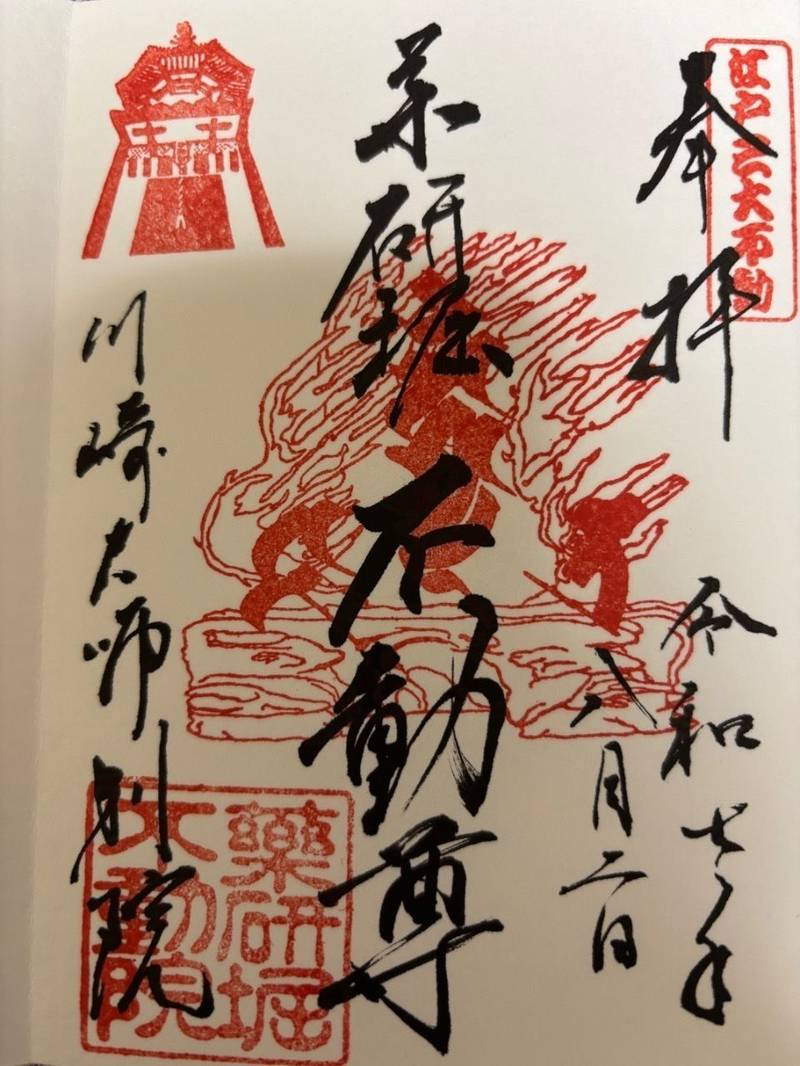 江戸三大不動
奉拝
令和七年
八月二日
薬研堀不動尊
川崎大師別院
薬研堀
不動院